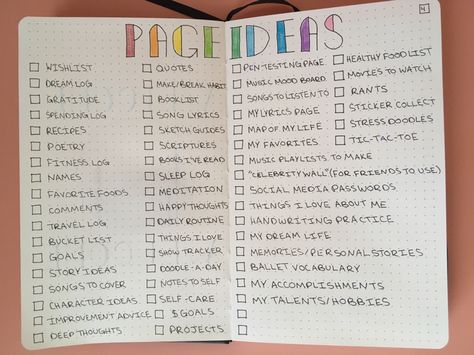 PAGE IDEAS
4
WISHLIST
DREAM LOG
GRATITUDE
SPENDING LOG
RECIPES
POETRY
FITNESS LOG
NAMES
FAVORITE FOODS
COMMENTS
TRAVEL LOG
BUCKET LIST
GOALS
STORY IDEAS
SONGS TO COVER
CHARACTER IDEAS
IMPROVEMENT ADVICE
DEEP THOUGHTS
QUOTES
MAKE/BREAK HABIT
BOOKLIST
SONG LYRICS
SKETCH GUIDES
SCRIPTURES
BOOKS I'VE READ
SLEEP LOG
MEDITATION
HAPPY THOUGHTS
DAILY ROUTINE
THINGS I LOVE
SHOW TRACKER
DOODLE-A-DAY
NOTES TO SELF
SELF-CARE
$ GOALS
PROJECTS
PEN TESTING PAGE
MUSIC MOOD BOARD
SONGS TO LISTEN TO
MY LYRICS PAGE
MAP OF MY LIFE
MY FAVORITES
MUSIC PLAYLISTS TO MAKE
"CELEBRITY WALL" (FOR FRIENDS TO USE)
SOCIAL MEDIA PASSWORDS
THINGS I LOVE ABOUT ME
HANDWRITING PRACTICE
MY DREAM LIFE
MEMORIES/PERSONAL STORIES
BALLET VOCABULARY
MY ACCOMPLISHMENTS
MY TALENTS/HOBBIES
HEALTHY FOOD LIST
MOVIES TO WATCH
RANTS
STICKER COLLECT
STRESS DOODLES
TIC-TAC-TOE